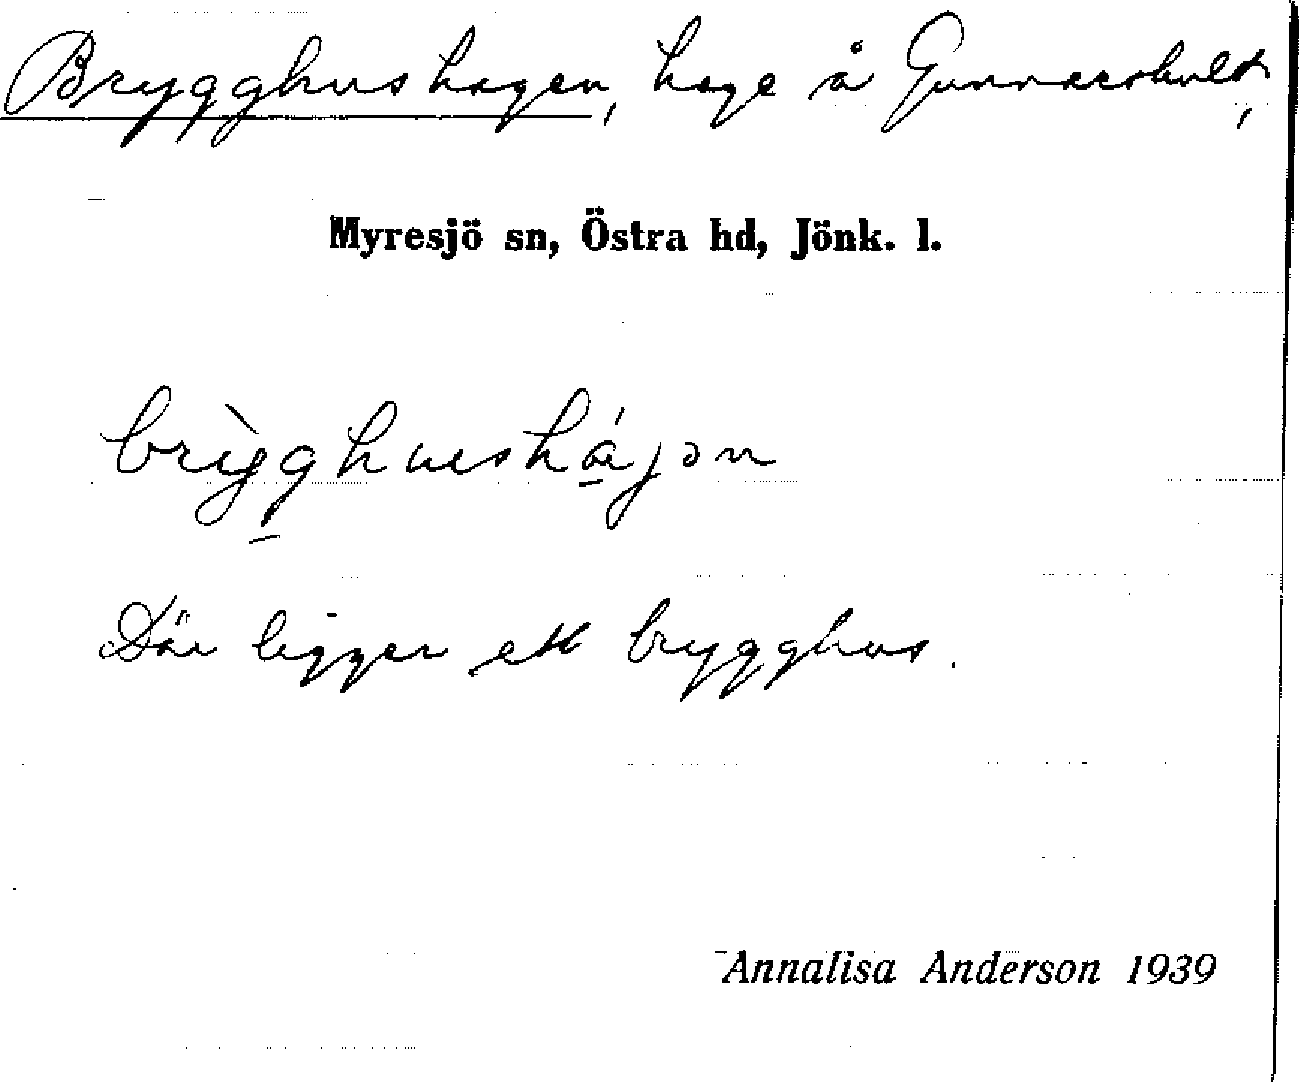 Brygghushagen, hage å Gunnarshult,
Myresjö sn, Östra hd, Jönk. l.
brỳgghushájən
Där ligger ett brygghus.
Annalisa Anderson 1939